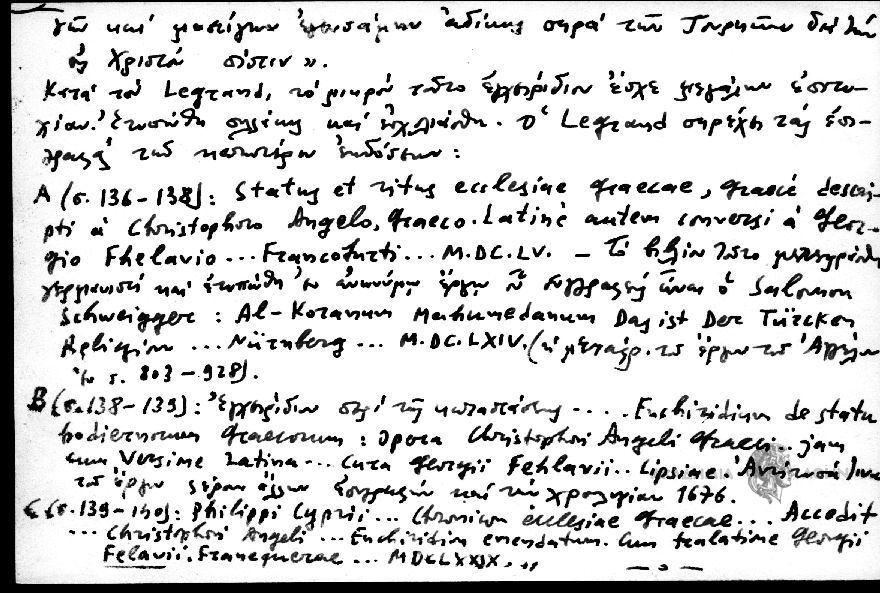 γῶν καὶ μαστίγων ἀδίκως παρὰ τῶν Τούρκων διὰ τὴν
εἰς Χριστὸν πίστιν».
Κατὰ τὸν Legrand, τὸ μικρὸν τοῦτο ἐγχειρίδιον ἔσχε μεγάλην ἐπιτυ-
χίαν. Ἐτυπώθη καὶ ἐσχολιάσθη. Ὁ Legrand παρέχει τὰς ἐπι-
γραφὰς τῶν κατωτέρω ἐκδόσεων:
A (σ. 136-138): Status et ritus ecclesiae graecae, graecè descri-
pti à Christophoro Angelo, Graeco. Latinè autem conversi à Geor-
gio Fhelavio... Francofurti... M.DC.LV. - Τὸ βιβλίον τοῦτο μετεφράσθη
γερμανιστὶ καὶ ἐτυπώθη ἐν ἀνωνύμῳ ἔργῳ οὗ συγγραφεὺς εἶναι ὁ Salomon
Schweigger: Al-Koranum Mahumedanum Das ist Der Türcken
Religion ... Nürnberg ... M.DC.LXIV. (ἡ μετάφρ. τοῦ ἔργου τοῦ Ἀγγέλου
ἐν σ. 803-928).
B (σ. 138-139): Ἐγχειρίδιον περὶ τῆς καταστάσεως .... Enchiridium de statu
hodiernorum Graecorum: opera Christophori Angeli Graeci.. jam
cum Versione Latina... Cura Georgii Fehlavii.. Lipsiae. Ἀντίτυπά τινα
τοῦ ἔργου φέρουν ἄλλην ἐπιγραφὴν καὶ τὴν χρονολογίαν 1676.
C (σ. 139-140): Philippi Cyprii... Chronicon ecclesiae Graecae... Accedit
... Christophori Angeli ... Enchiridion emendatum. Cum tralatione Georgii
Felavii. Franequerae ... MDCLXXIX.,,